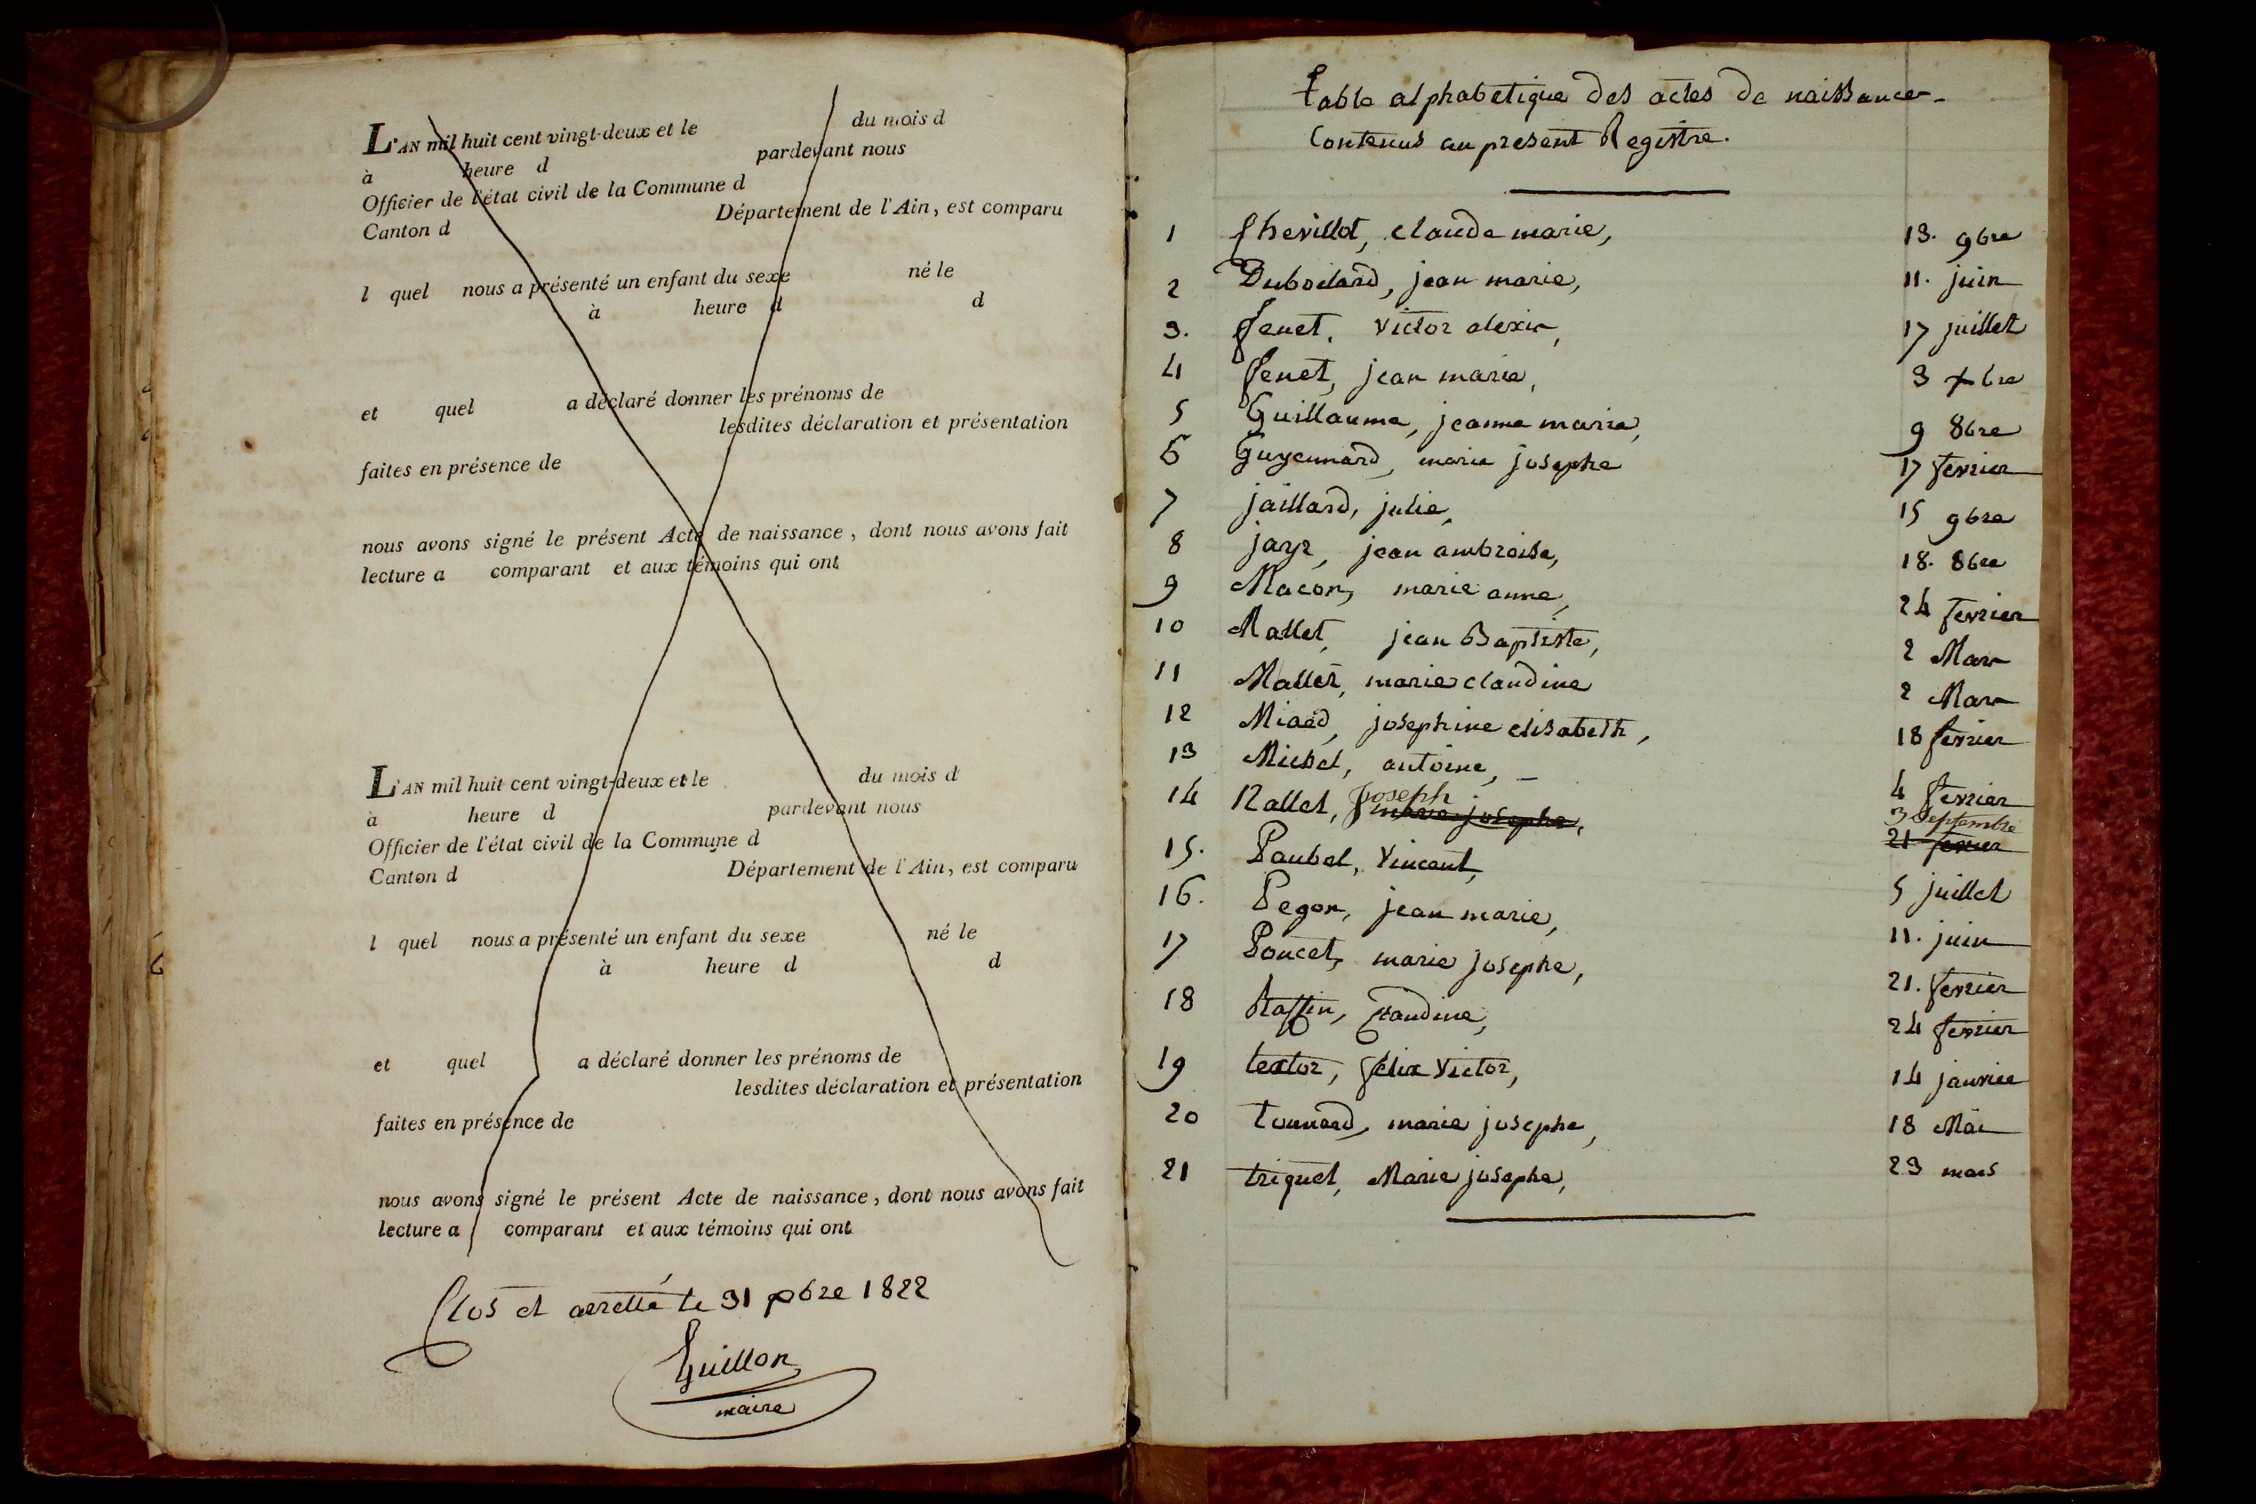 L'AN mil huit cent vingt-deux et le du mois d
à heure d pardevant nous
Officier de l'état civil de la Commune d
Canton d Département de l'Ain, est comparu
l quel nous a présenté un enfant du sexe né le
à heure d d
et quel a déclaré donner les prénoms de
lesdites déclaration et présentation
faites en présence de
nous avons signé le présent Acte de naissance, dont nous avons fait
lecture a comparant et aux témoins qui ont
L'AN mil huit cent vingt-deux et le du mois d
à heure d pardevant nous
Officier de l'état civil de la Commune d
Canton d Département de l'Ain, est comparu
l quel nous a présenté un enfant du sexe né le
à heure d d
et quel a déclaré donner les prénoms de
lesdites déclaration et présentation
faites en présence de
nous avons signé le présent Acte de naissance, dont nous avons fait
lecture a comparant et aux témoins qui ont
Clos et arretté le 31 xbre 1822
Guillon
maire
table alphabetique des actes de naissances
Contenus au present Registre.
1 Chevillot, claude marie, 13. 9bre
2 Duboitard, jean marie, 11. juin
3. fenet, victor alexis, 17 juillet
4 fenet, jean marie, 3 xbre
5 Guillaume, jeanne marie, 9 8bre
6 Guyennard, marie josephe 17 fevrier
7 jaillard, julie, 15 9bre
8 jayr, jean ambroise, 18. 8bre
9 Macon, marie anne, 24 fevrier
10 Mallet, jean Baptiste, 2 Mars
11 Mallet, marie claudine 2 Mars
12 Miard, josephine elisabeth, 18 fevrier
13 Michel, antoine, 4 fevrier
14 Nallet, joseph 3 septembre
21 fevrier
15. Paubel, Vincent, 5 juillet
16. Pegon, jean marie, 11. juin
17 Poncet, marie josephe, 21. fevrier
18 Raffin, Claudine, 24 fevrier
19 textor, félix Victor, 14 janvier
20 tonnard, marie josephe, 18 Mai
21 triquet, Marie josephe, 23 mars